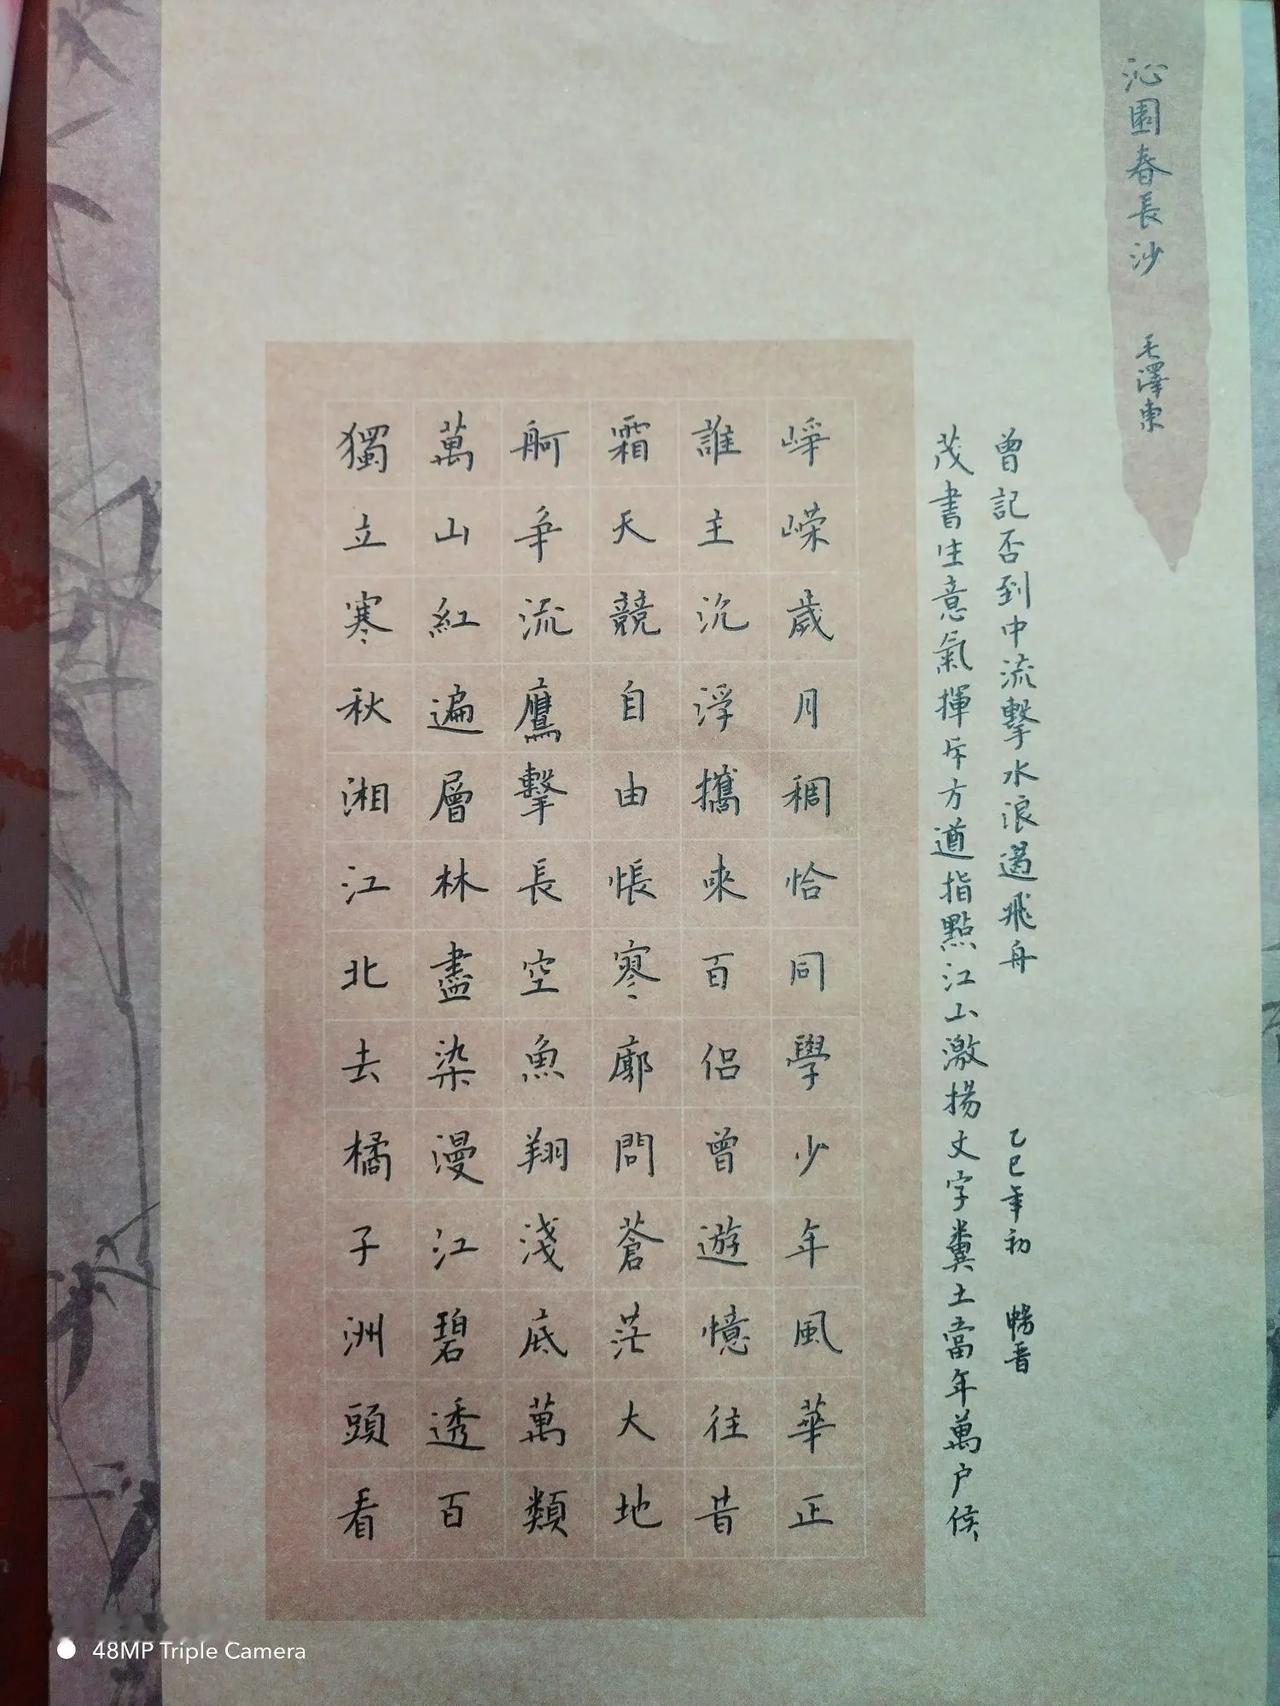 沁園春長沙 毛澤東
獨立寒秋湘江北去橘子洲頭看
萬山紅遍層林盡染漫江碧透百
舸争流鷹擊長空魚翔淺底萬類
霜天競自由悵寥廓問蒼茫大地
誰主沉浮攜來百侣曾遊憶往昔
崢嶸歲月稠恰同學少年風華正
茂書生意氣揮斥方遒指點江山激揚文字糞土當年萬户侯
曾記否到中流擊水浪遏飛舟 乙巳年初 暢晋
48MP Triple Camera